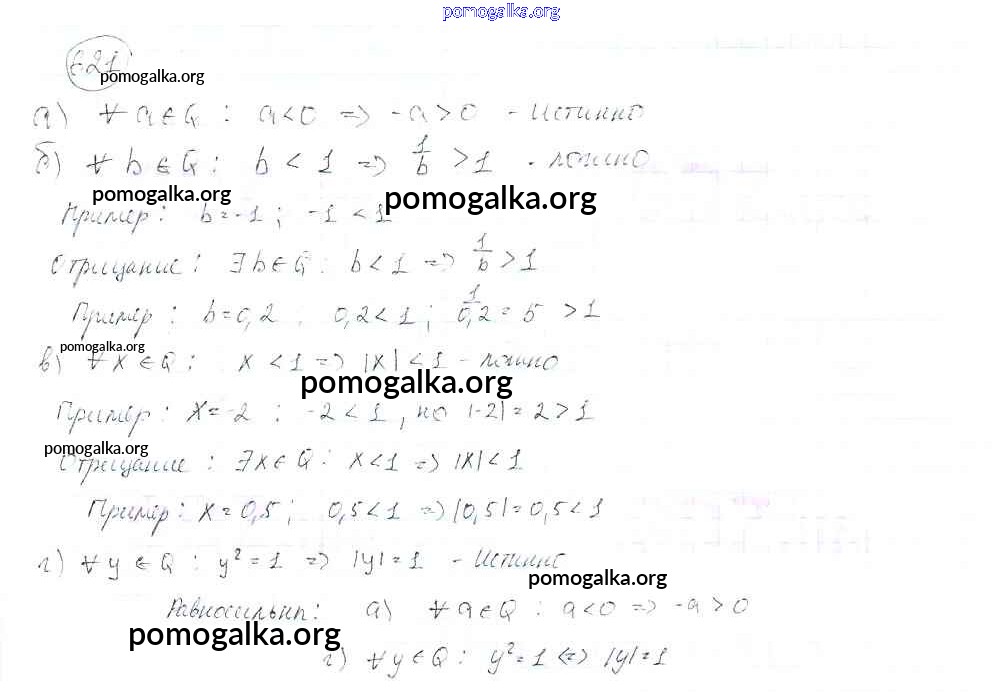 pomogalka.org
621
pomogalka.org
а) ∀ a ∈ Q : a < 0 => -a > 0 - Истинно
б) ∀ b ∈ Q : b < 1 => 1/b > 1 - ложно
pomogalka.org pomogalka.org
Пример: b = -1 ; -1 < 1
Отрицание : ∃ b ∈ Q : b < 1 => 1/b > 1
Пример : b = 0,2 ; 0,2 < 1 ; 1/0,2 = 5 > 1
pomogalka.org
в) ∀ x ∈ Q : x < 1 => |x| < 1 - ложно
pomogalka.org
Пример : x = -2 ; -2 < 1 , но |-2| = 2 > 1
pomogalka.org
Отрицание : ∃ x ∈ Q : x < 1 => |x| < 1
Пример : x = 0,5 ; 0,5 < 1 => |0,5| = 0,5 < 1
г) ∀ y ∈ Q : y² = 1 => |y| = 1 - Истинно
pomogalka.org
Равносильны : а) ∀ a ∈ Q : a < 0 => -a > 0
pomogalka.org
г) ∀ y ∈ Q : y² = 1 <=> |y| = 1